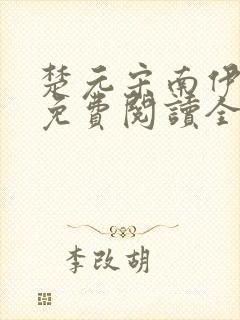 楚元宋南伊
免費閱讀全
李改胡